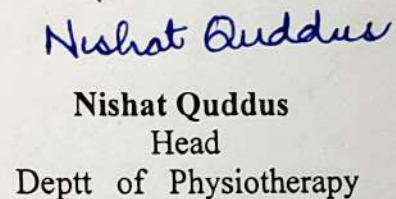 Nishat Quddus
Nishat Quddus
Head
Deptt of Physiotherapy